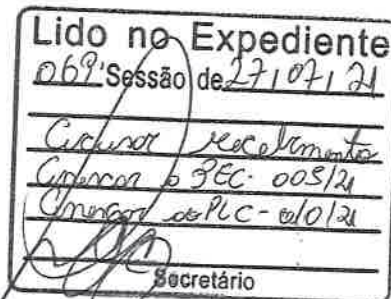 Lido no Expediente
069ª Sessão de 27/07/21
Acusar recebimento
Anexar a PEC. 005/21
Anexar ao PLC - 010/21
Secretário